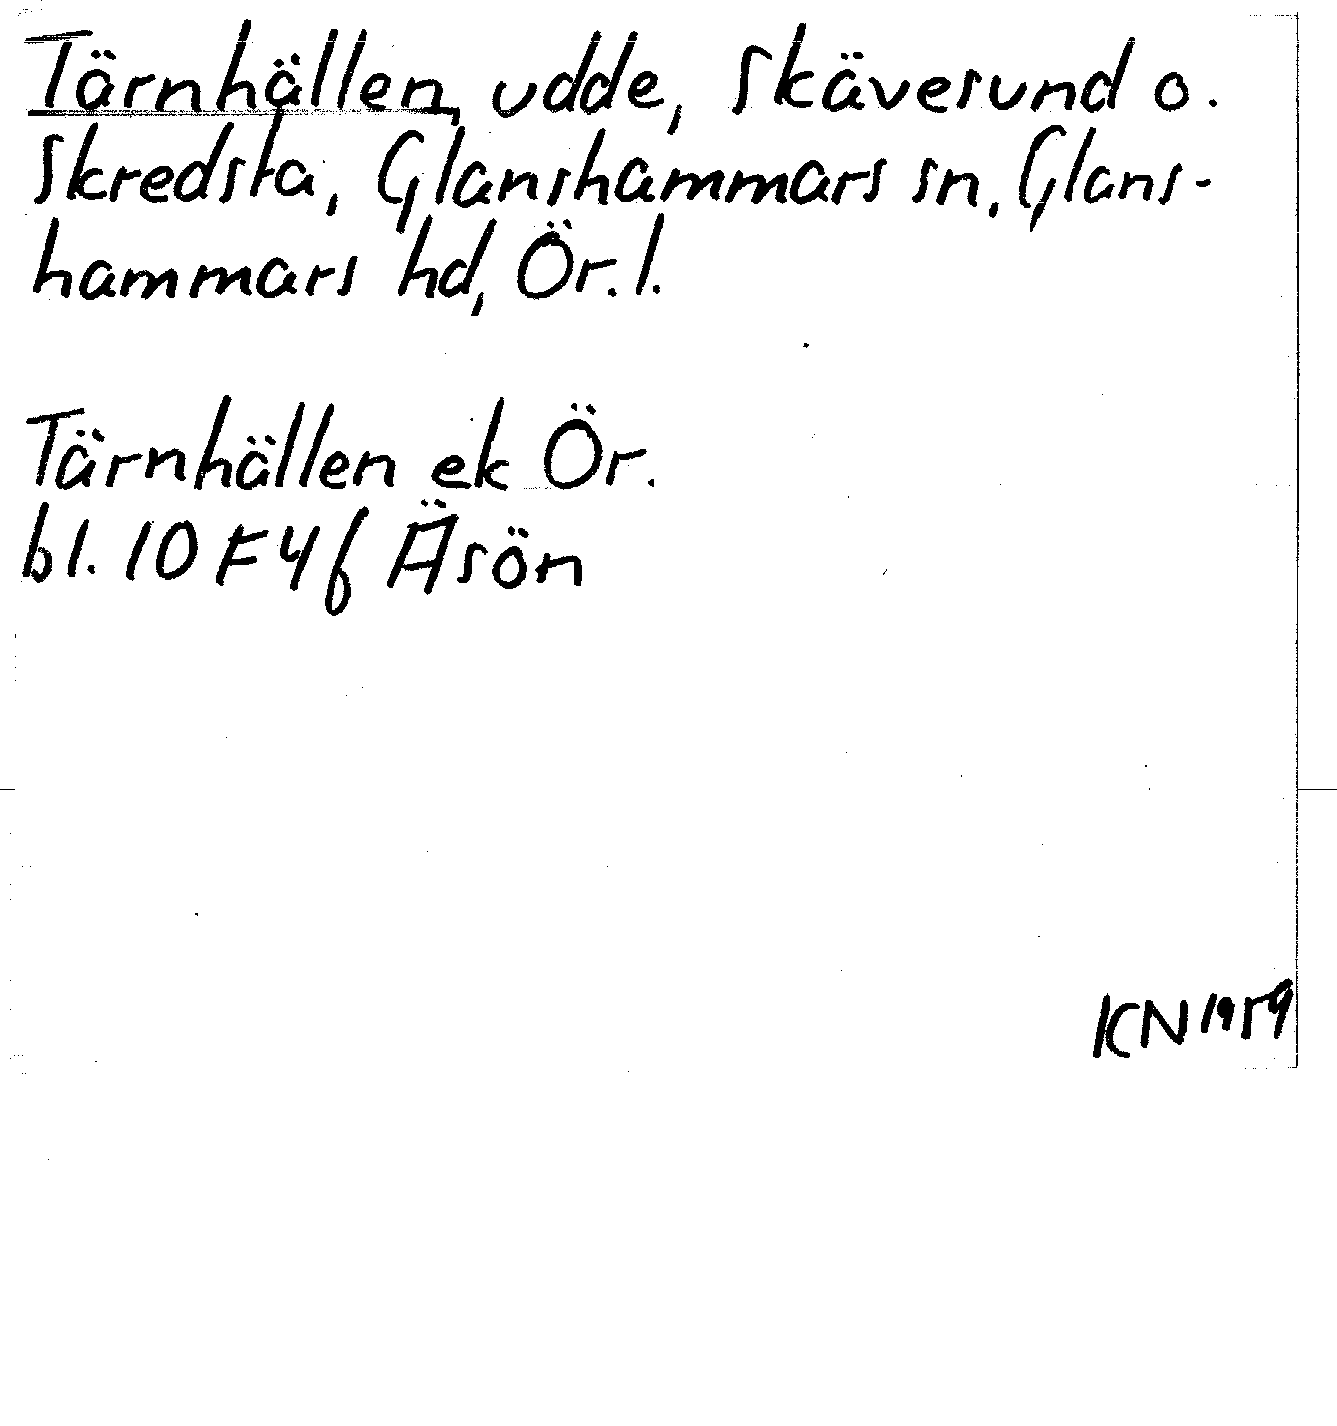 Tärnhällen, udde, Skävesund o.
Skredsta, Glanshammars sn, Glans-
hammars hd, Ör. l.
Tärnhällen ek Ör.
bl. 10 F 4 f Äsön
KN 1959